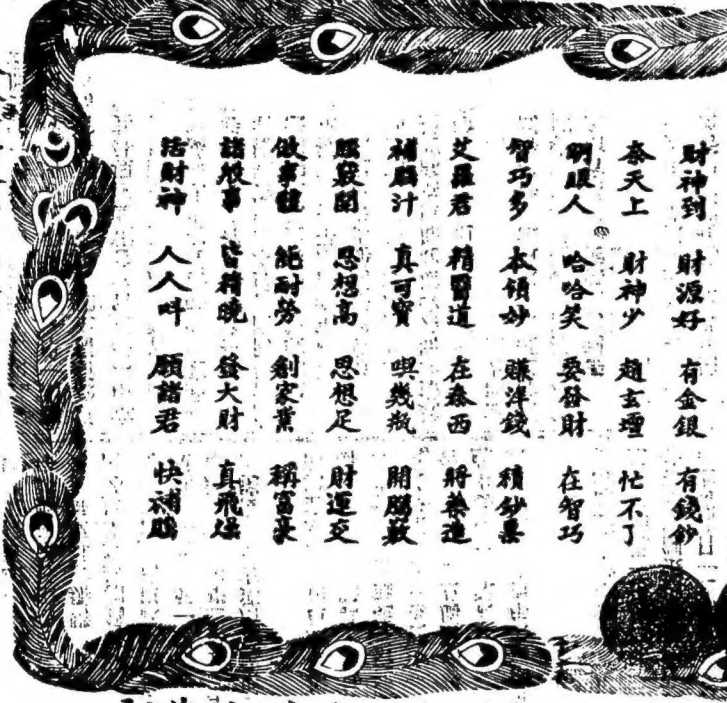 財神到　財源好　有金銀　有錢鈔
奈天上　財神少　趙玄壇　忙不了
明眼人　哈哈笑　要發財　在智巧
智巧多　本領妙　賺洋錢　積鈔票
艾羅君　精醫道　在泰西　將藥造
補腦汁　真可寶　喫幾瓶　開腦竅
腦竅開　思想高　思想足　財運交
做事體　能耐勞　創家業　稱富豪
諸般事　皆精曉　發大財　真飛燥
活財神　人人叫　願諸君　快補腦